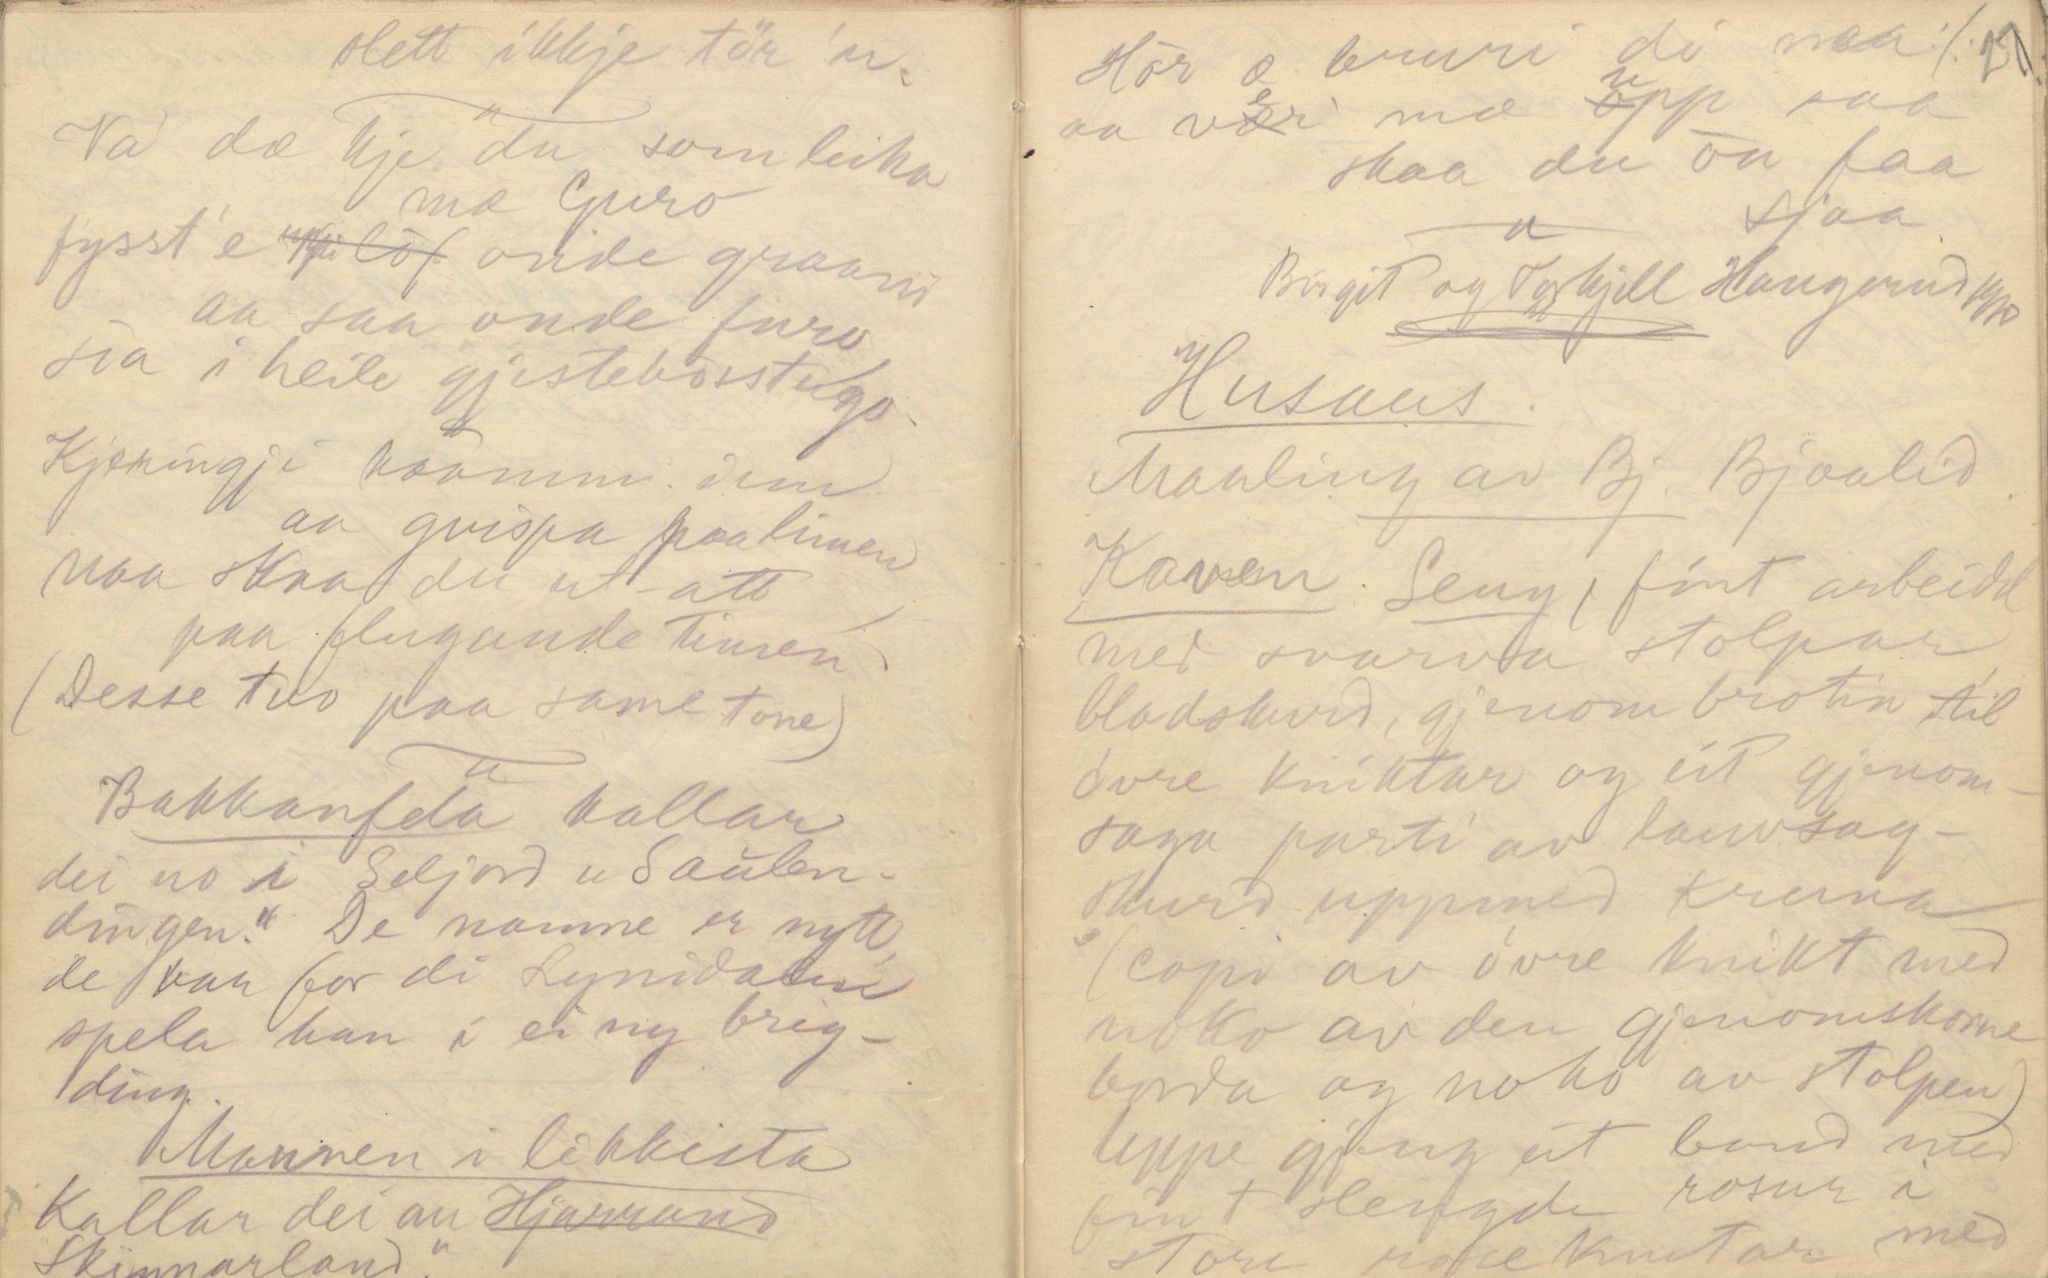 slett ikkje tör 'n.
Va dæ kje du som leika
mæ Guro
fysst 'e löf onde graani
aa saa onde furo
sia i heile gjestebosstugo.
Kjæringji kaamm inn
aa gvispa paa limen
naa skaa du ut-att
paa flugande timen.
(Desse tvo paa same tone)
Bakkanfela kallar
dei no i Seljord "Saulen-
dingen." De namne er nytt,
de kan for di Lynidalen
spela han i ei ny brig-
ding.
Mannen i likkista
kallar dei au Hjarrand
Skinnarland."
Hör æ bruri di naa :/:
aa veri mæ upp saa
skaa du ön faa
sjaa
Birgit og Torkjell Haugerud
Husaas.
Maaling av Bj. Bjaalid.
Kaven. Seng, fint arbeidd
med svarva stolpar,
bladskurd, gjenombrotin til
övre kniktar og eit gjenom-
saga parti av lauvsag-
skurd uppmed kruna
(copi av övre knikt med
noko av den gjenomskorne
borda og noko av stolpen)
Uppe gjeng eit band med
fint slengde rosur i
store roseknutar med